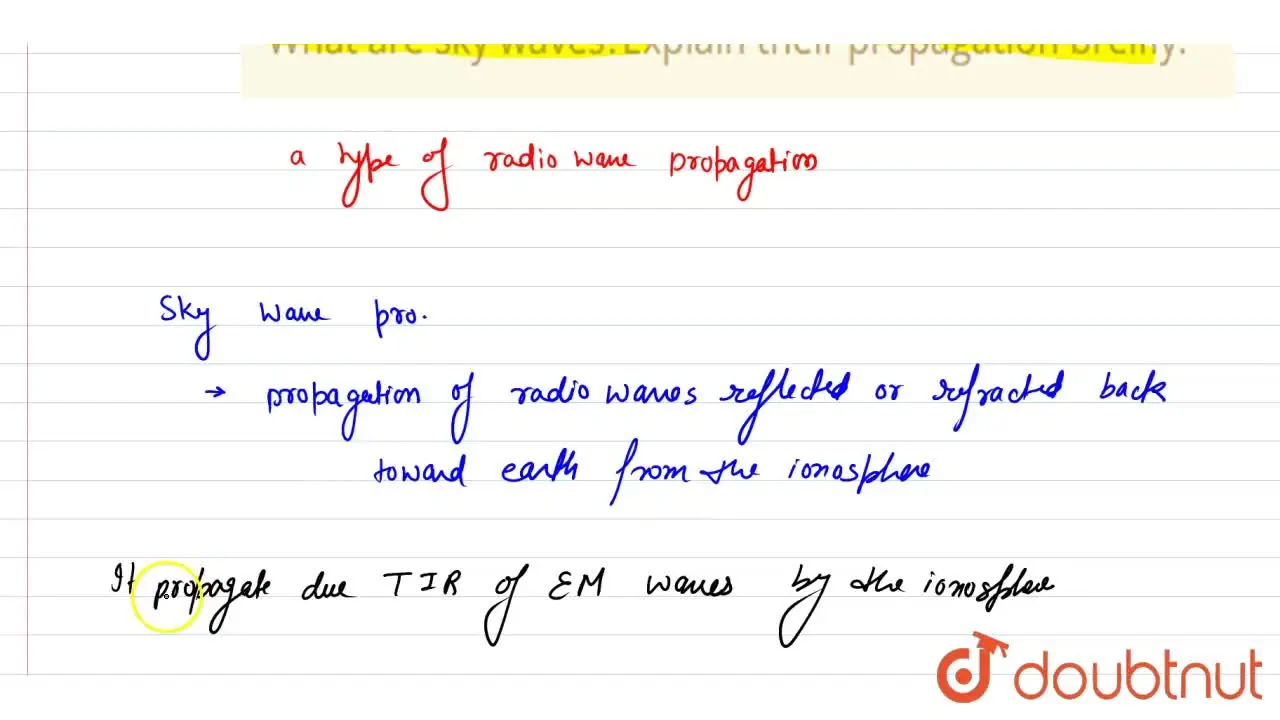 What are sky waves? Explain their propagation briefly.
a type of radio wave propagation
Sky wave pro.
→ propagation of radio waves reflected or refracted back
toward earth from the ionosphere
It propagate due TIR of EM waves by the ionosphere
doubtnut